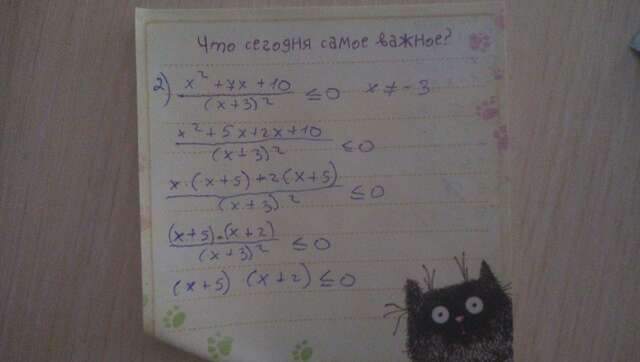 Что сегодня самое важное?
2) x² + 7x + 10 / (x+3)² ≤ 0 x ≠ -3
x² + 5x + 2x + 10 / (x+3)² ≤ 0
x·(x+5) + 2(x+5) / (x+3)² ≤ 0
(x+5)·(x+2) / (x+3)² ≤ 0
(x+5) · (x+2) ≤ 0